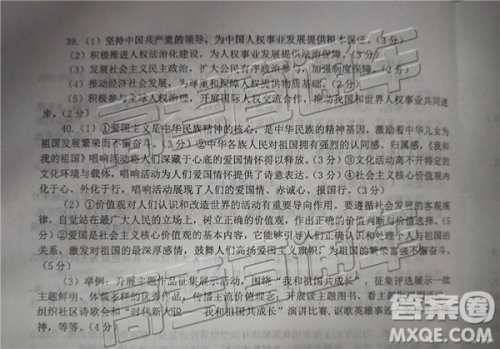 39.（1）坚持中国共产党的领导，为中国人权事业发展提供根本保证。（3分）
（2）积极推进人权法治化建设，为人权事业发展提供法治保障。（3分）
（3）发展社会主义民主政治，扩大公民有序政治参与，加强制度保障。（2分）
（4）推动经济社会发展，为尊重和保障人权提供物质基础。（2分）
（5）积极参与全球人权治理，开展国际人权交流合作，推动我国和世界人权事业共同进
步。（2分）
40.（1）①爱国主义是中华民族精神的核心，是中华民族的精神基因，激励着中华儿女为
祖国发展繁荣而不懈奋斗。（3分）②中华各族人民对祖国拥有强烈的认同感、归属感，《我和
我的祖国》唱响活动将人们深藏于心底的爱国情怀得以释放。（3分）③文化活动离不开特定的
文化环境与载体，唱响活动为人们爱国情怀提供了诗意表达。（3分）④社会主义核心价值观内
化于心、外化于行，唱响活动展现了人们的爱国情、赤诚心、报国行。（3分）
（2）①价值观对人们认识和改造世界的活动有重要导向作用。要遵循社会发展的客观规
律，自觉站在最广大人民的立场上，树立正确的价值观，作出正确的价值判断与价值选择。（5
分）②爱国是社会主义核心价值观的基本内容，它能够引导人们正确认识和处理个人与祖国的
关系，激发对祖国的最深厚感情，鼓舞人们高扬爱国主义旗帜，为祖国的繁荣富强不懈奋斗。
（5分）
（3）举例：开展主题作品征集展示活动，围绕“我和祖国共成长”，征集评选展示一批
主题鲜明、体裁多样的优秀作品，传播主流价值理念；开展读主题图书、看主题
组织社区诗歌会和“时代新人说——我和祖国共成长”演讲比赛，讴歌英雄事
神，等等。（4分）
高考直通车
答案圈
MXQE.COM